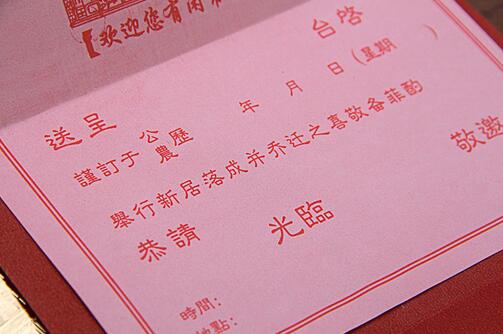 【欢迎您有闲
送呈 台啓
謹訂于 公農歷 年 月 日(星期 )
舉行新居落成并乔迁之喜敬备菲酌
恭請 光臨 敬邀
時間:
地點: